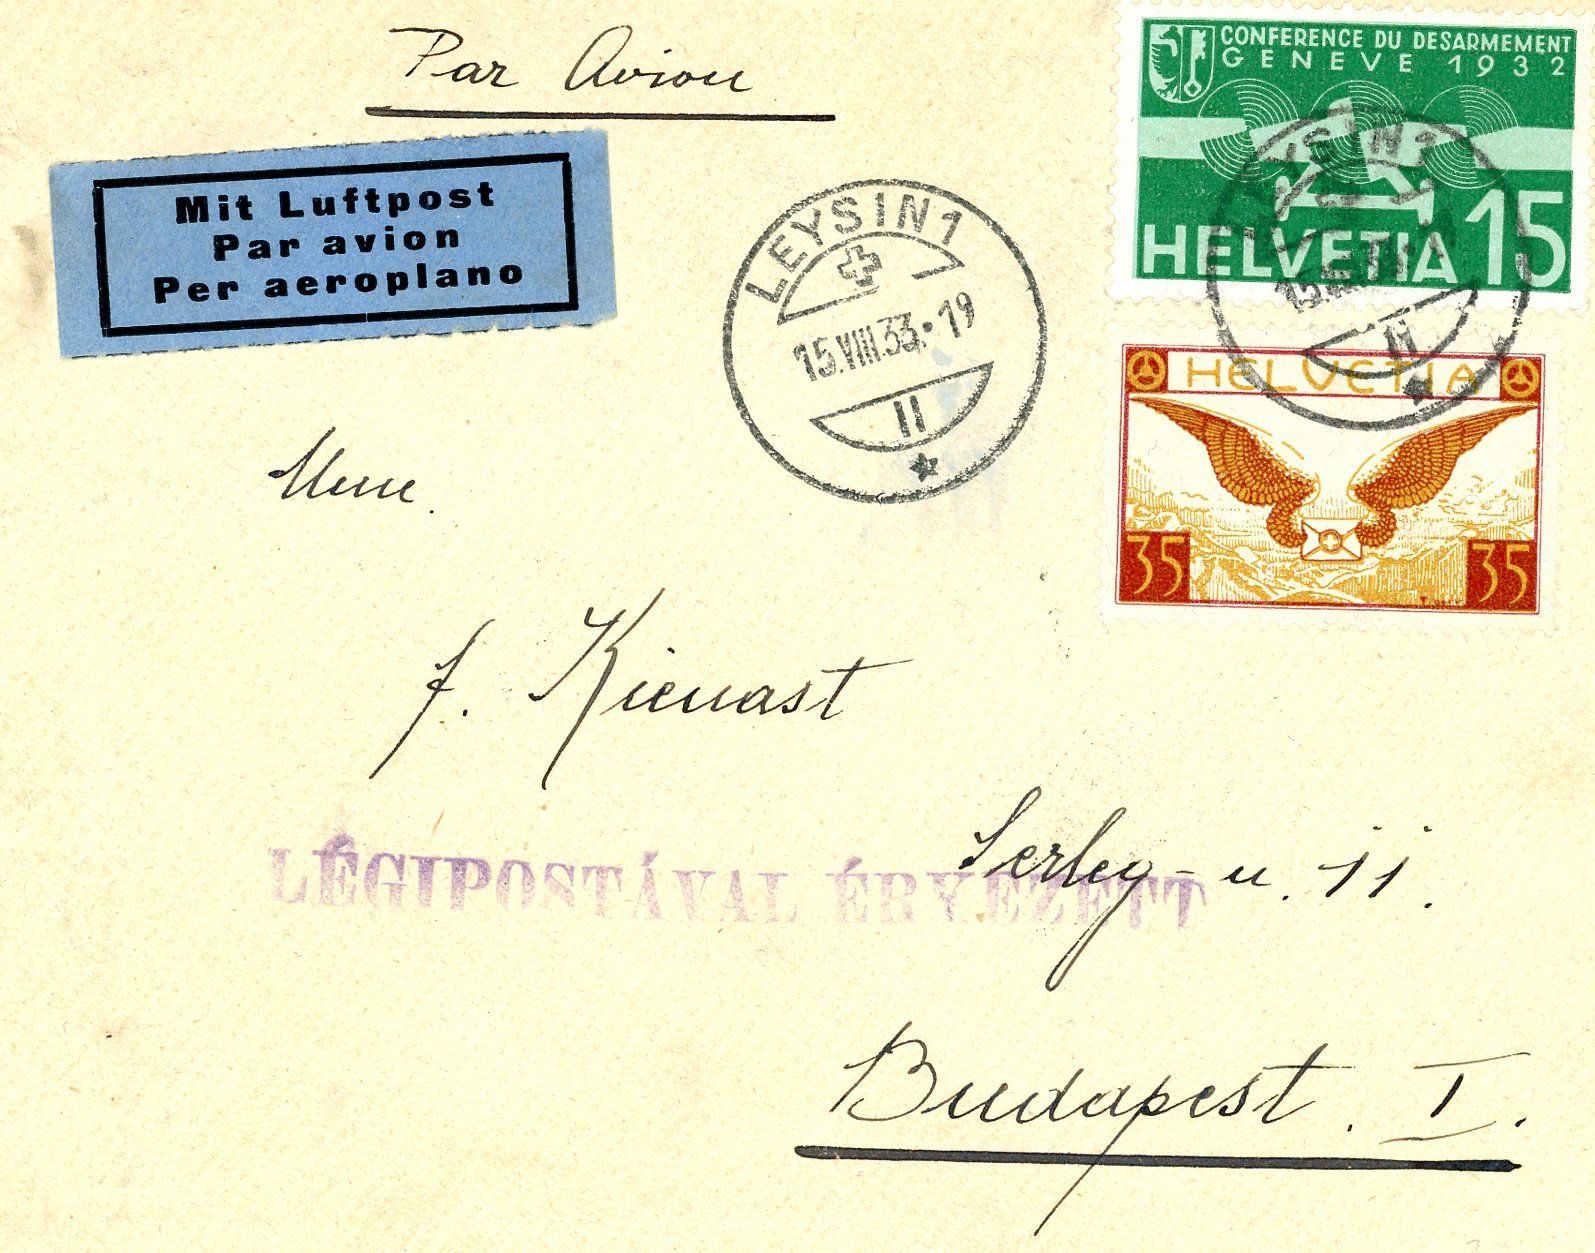 Par Avion
Mit Luftpost
Par avion
Per aeroplano
LEYSIN 1
15.VIII.33.•19
II
CONFERENCE DU DESARMEMENT
GENEVE 1932
HELVETIA 15
LEYSIN 1
15.VIII.33.
II
HELVETIA
35 35
Mme.
f. Kienast
LÉGIPOSTÁVAL ÉRKEZETT
Serleg-u. 11.
Budapest. I.